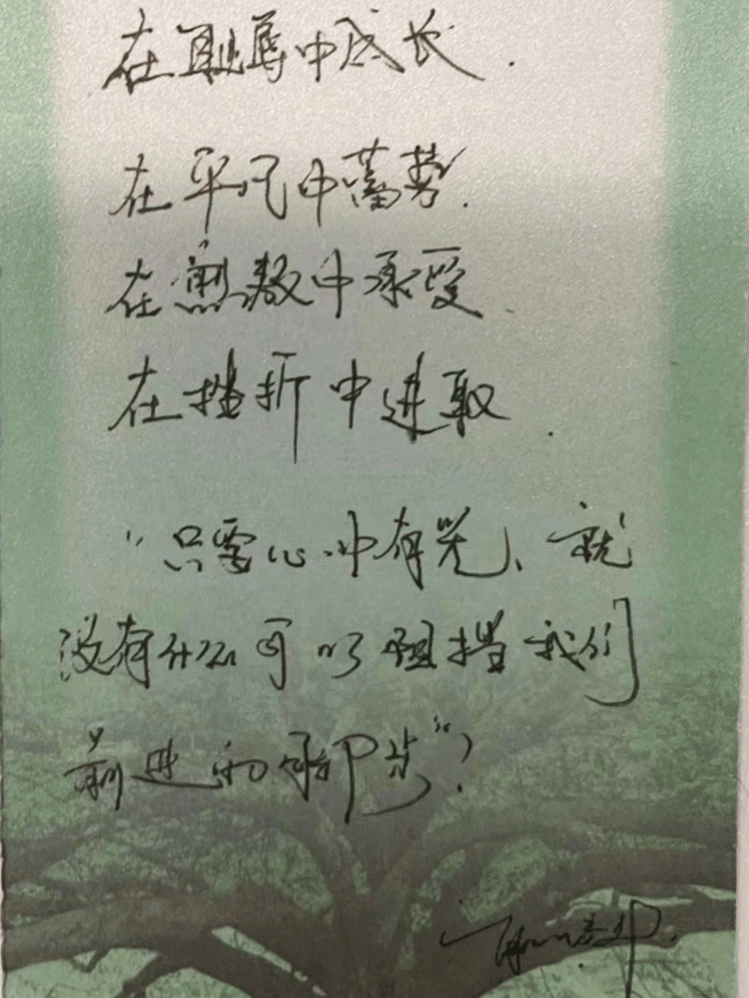 在耻辱中成长.
在平凡中蓄势.
在煎熬中承受.
在挫折中进取.
"只要心中有光、就
没有什么可以阻挡我们
前进的脚步"?